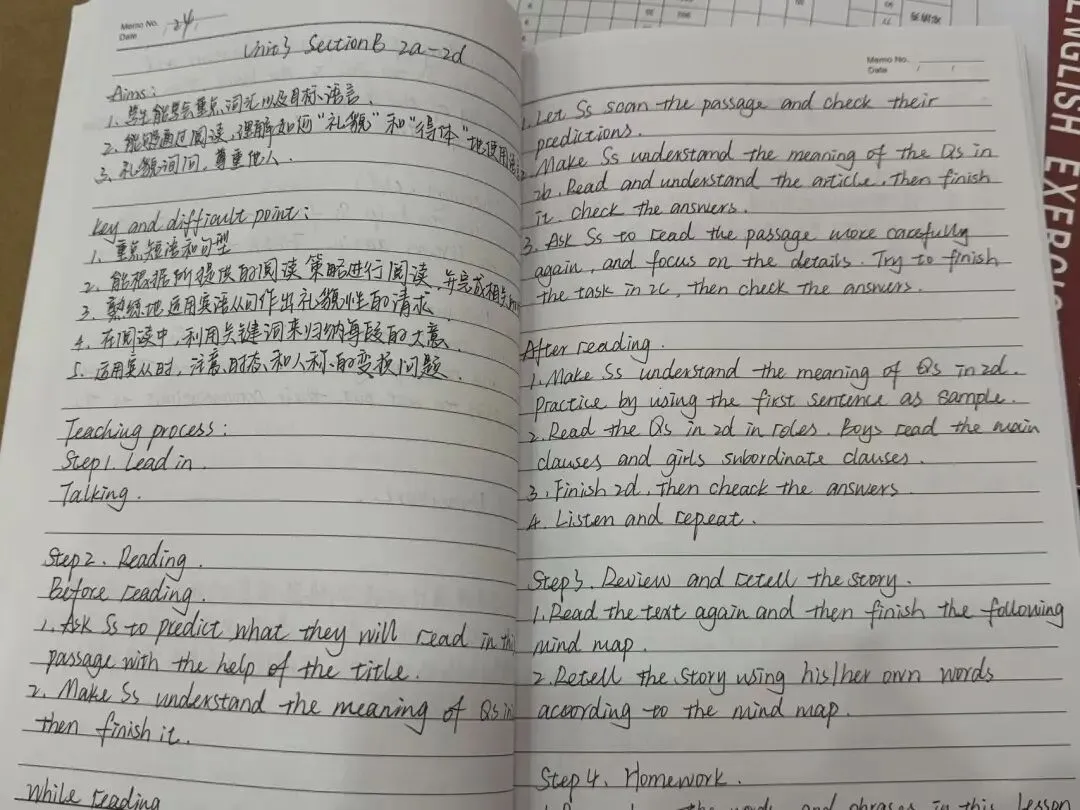 Memo No. 24
Date
Unit3 Section B 2a-2d
Aims:
1. 学生能学会重点词汇以及目标语言.
2. 能够通过阅读,理解如何"礼貌"和"得体"地使用语言
3. 礼貌询问,尊重他人.
key and difficult point:
1. 重点短语和句型
2. 能根据所提供的阅读策略进行阅读,并完成相关
3. 熟练地运用宾语从句作出礼貌性的请求.
4. 在阅读中,利用关键词来归纳每段的大意.
5. 运用宾从时,注意时态和人称的变换问题.
Teaching process:
Step1. Lead in.
Talking.
Step2. Reading.
Before reading.
1. Ask Ss to predict what they will read in this
passage with the help of the title.
2. Make Ss understand the meaning of Qs in
then finish it.
While reading
Memo No.
Date / /
1. Let Ss scan the passage and check their
predictions.
Make Ss understand the meaning of the Qs in
2b. Read and understand the article, then finish
it. check the answers.
3. Ask Ss to read the passage more carefully
again, and focus on the details. Try to finish
the task in 2c, then check the answers.
After reading.
1. Make Ss understand the meaning of Qs in 2d.
Practice by using the first sentence as sample.
2. Read the Qs in 2d in roles. Boys read the main
clauses and girls subordinate clauses.
3. Finish 2d, then cheack the answers.
4. Listen and repeat.
Step3. Review and retell the story.
1. Read the text again and then finish the following
mind map.
2. Retell the story using his/her own words
according to the mind map.
Step 4. Homework.
the words and phrases in this lesson
ENGLISH EXERCISE